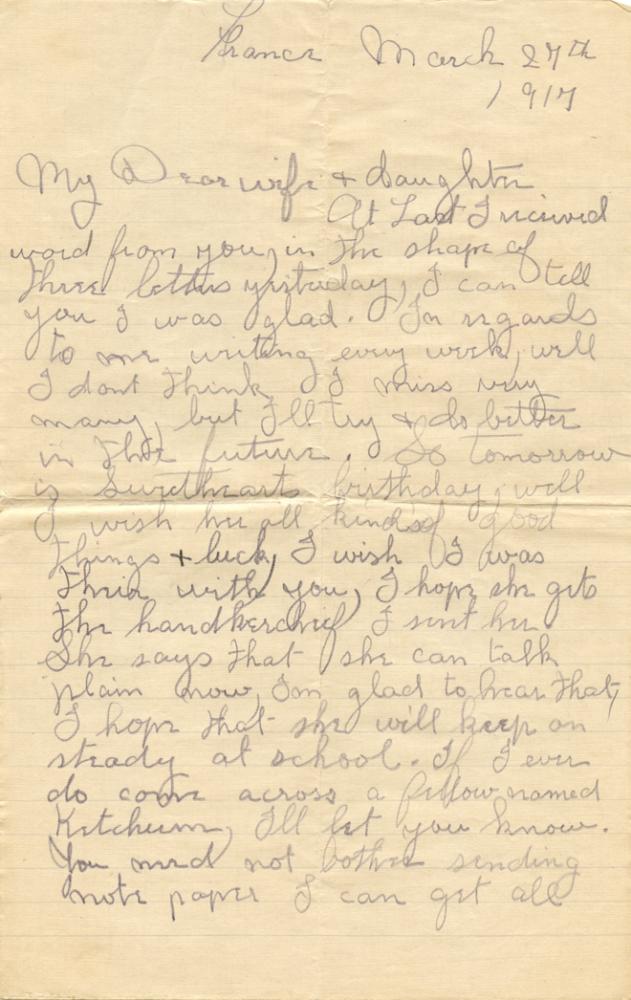 France March 27th
1917
My Dear wife & daughter
At Last I recieved
word from you, in the shape of
three letters yesterday, I can tell
you I was glad. In regards
to me writing every week, well
I dont think I miss very
many, but I'll try & do better
in the future. So tomorrow
is Sweethearts birthday, well
I wish her all kinds of good
things & luck, I wish I was
their with you, I hope she gets
the handkerchief I sent her
She says that she can talk
plain now, Im glad to hear that,
I hope that she will keep on
steady at school. If I ever
do come across a fellow named
Ketcheum, I'll let you know.
You need not bother sending
note paper I can get all